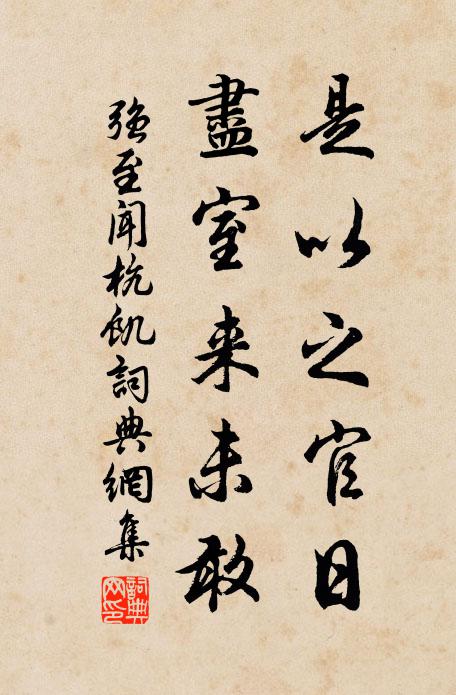 是以之官日
盡室來未敢
強至聞杭飢詞典網集
詞典網印